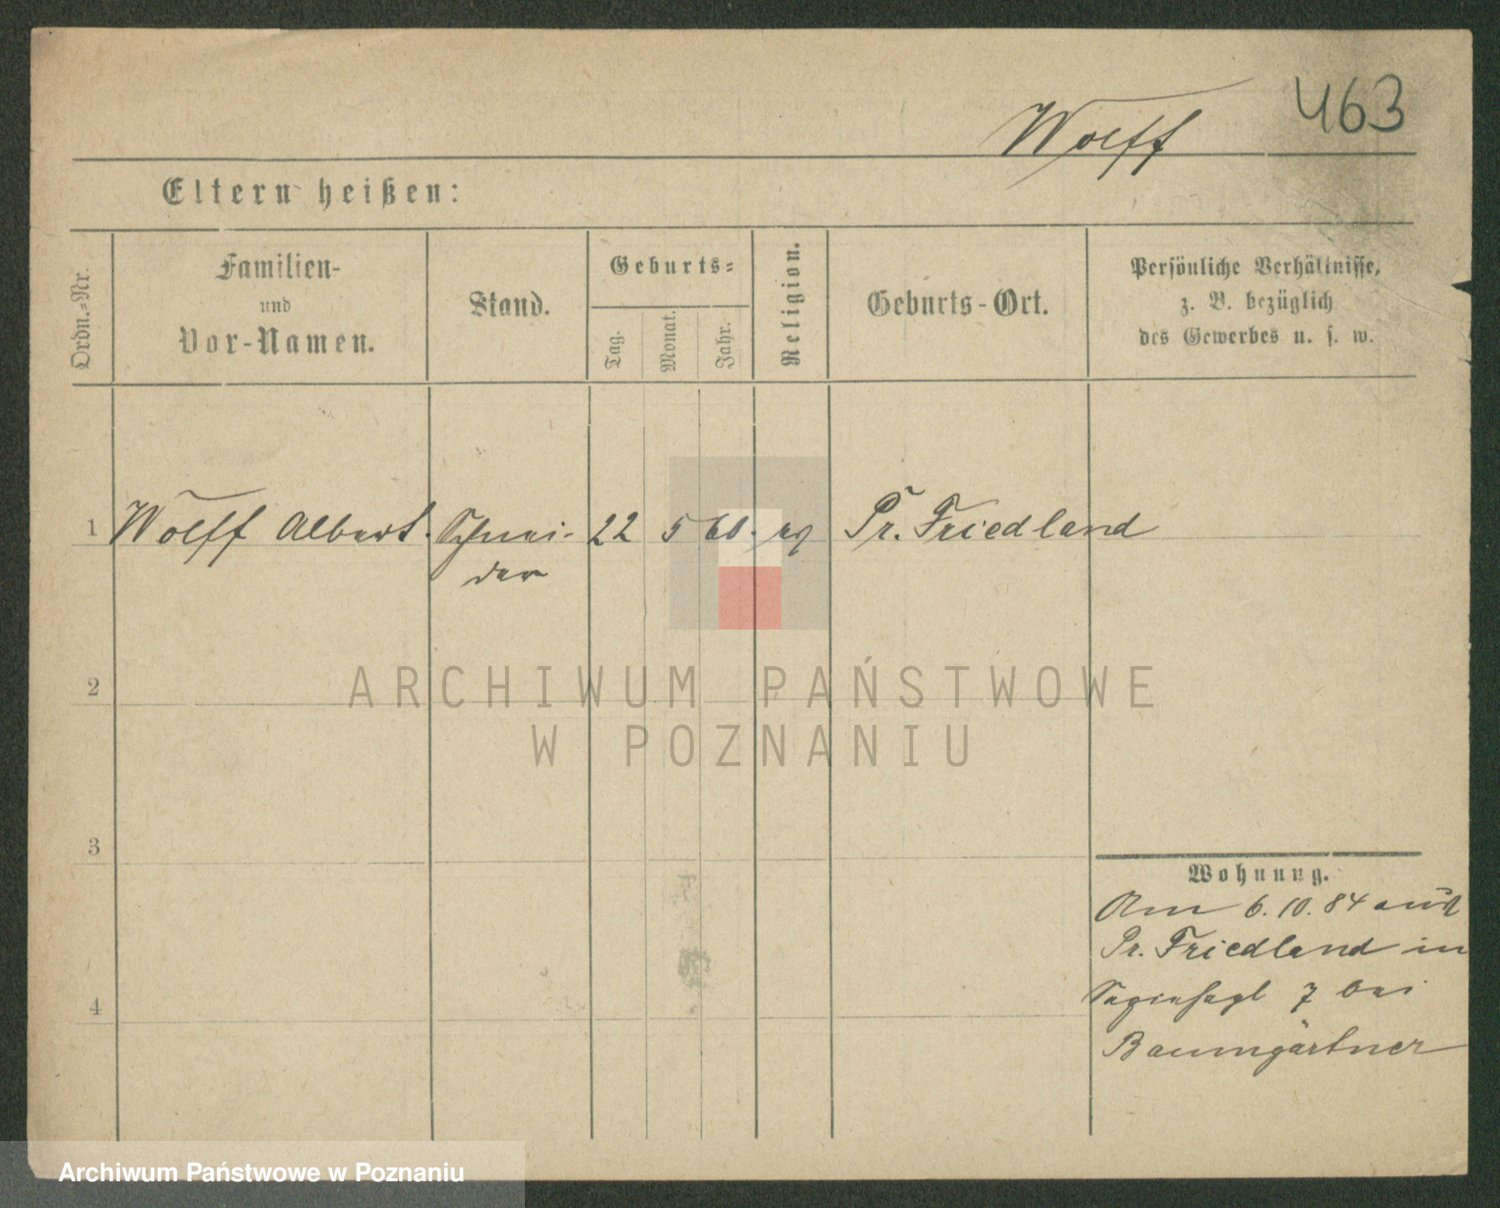 463
Wolff
Eltern heißen:
Ordn.-Nr.
Familien-
und
Vor-Namen.
Stand.
Geburts-
Tag.
Monat.
Jahr.
Religion.
Geburts-Ort.
Persönliche Verhältnisse,
z. B. bezüglich
des Gewerbes u. s. w.
1 Wolff Albert. Schnei- 22 5 60. Pr. Friedland
der
2
ARCHIWUM PAŃSTWOWE
W POZNANIU
3
Wohnung.
Am 6.10.84 aus
Pr. Friedland in
7 bei
4
Baumgärtner
Archiwum Państwowe w Poznaniu